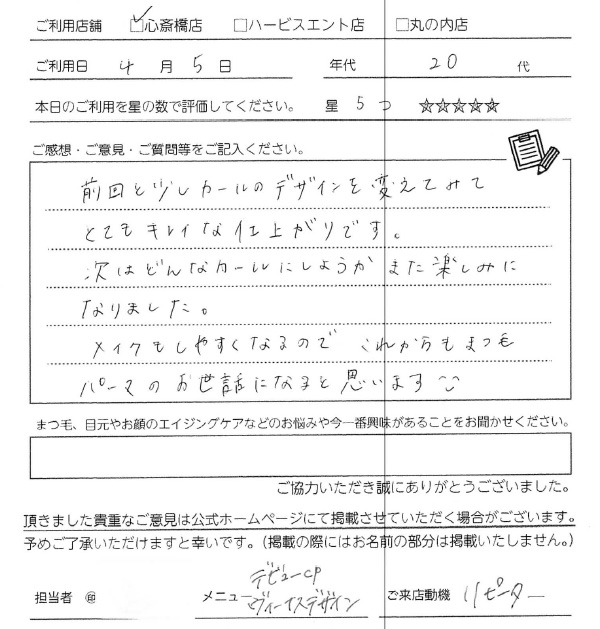 ご利用店舗 ☑心斎橋店 □ハービスエント店 □丸の内店
ご利用日 4 月 5 日 年代 20 代
本日のご利用を星の数で評価してください。 星 5 つ ☆☆☆☆☆
ご感想・ご意見・ご質問等をご記入ください。
前回と少しカールのデザインを変えてみて
とてもキレイな仕上がりです。
次はどんなカールにしようか また楽しみに
なりました。
メイクもしやすくなるので これからもまつ毛
パーマのお世話になると思います
まつ毛、目元やお顔のエイジングケアなどのお悩みや今一番興味があることをお聞かせください。
ご協力いただき誠にありがとうございました。
頂きました貴重なご意見は公式ホームページにて掲載させていただく場合がございます。
予めご了承いただけますと幸いです。（掲載の際にはお名前の部分は掲載いたしません。）
デビューCP
担当者 ㊞ メニュー ヴィーナスデザイン ご来店動機 リピーター